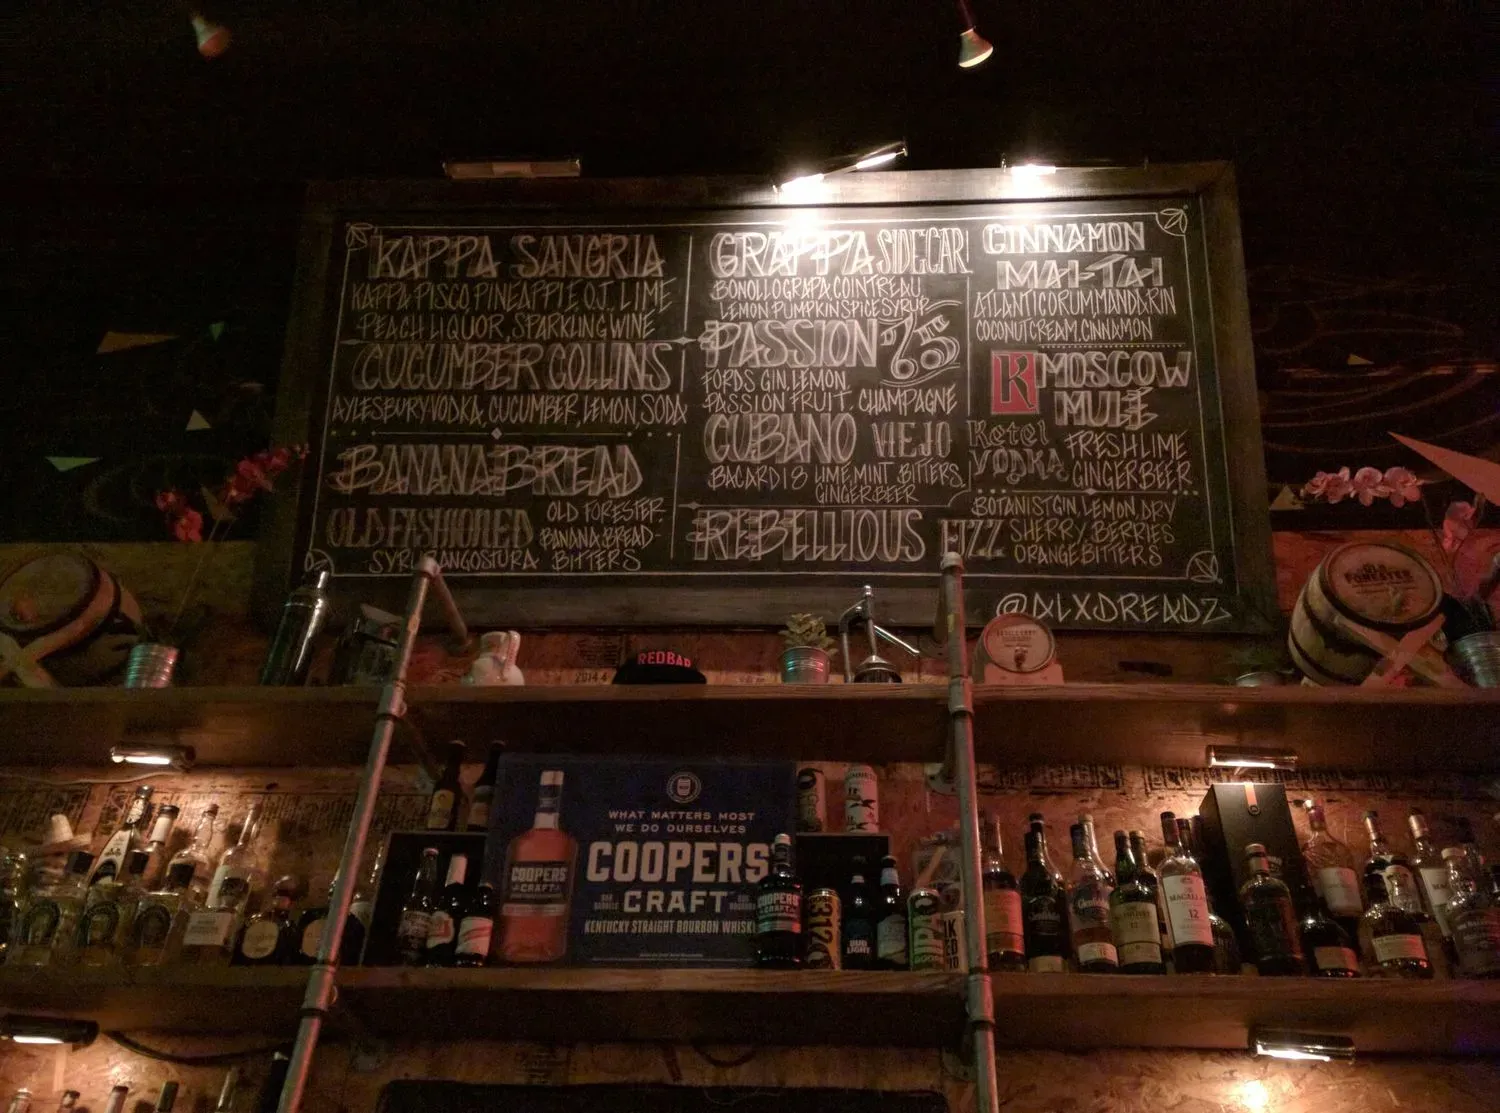 KAPPA SANGRIA
KAPPA PISCO, PINEAPPLE, O.J., LIME
PEACH LIQUOR, SPARKLING WINE
CUCUMBER COLLINS
AYLESBURY VODKA, CUCUMBER, LEMON, SODA
BANANA BREAD
OLD FASHIONED
OLD FORESTER
BANANA BREAD-
SYRUP ANGOSTURA BITTERS
GRAPPA SIDECAR
BONOLLO GRAPA, COINTREAU,
LEMON PUMPKIN SPICE SYRUP
PASSION 75
FORDS GIN, LEMON,
PASSION FRUIT, CHAMPAGNE
CUBANO VIEJO
BACARDI 8 LIME, MINT, BITTERS,
GINGER BEER
REBELLIOUS FIZZ
BOTANIST GIN, LEMON, DRY
SHERRY, BERRIES
ORANGE BITTERS
CINNAMON
MAI-TAI
ATLANTICO RUM, MANDARIN
COCONUT CREAM, CINNAMON
K MOSCOW
MULE
Ketel
VODKA
FRESH LIME
GINGER BEER
@ALXDREADZ
OLD
FORESTER
REDBAR
2014
WHAT MATTERS MOST
WE DO OURSELVES
COOPERS
CRAFT
KENTUCKY STRAIGHT BOURBON WHISKEY
COOPERS
CRAFT
COOPERS
CRAFT
312
BUD
LIGHT
IPA
MACALLAN
12